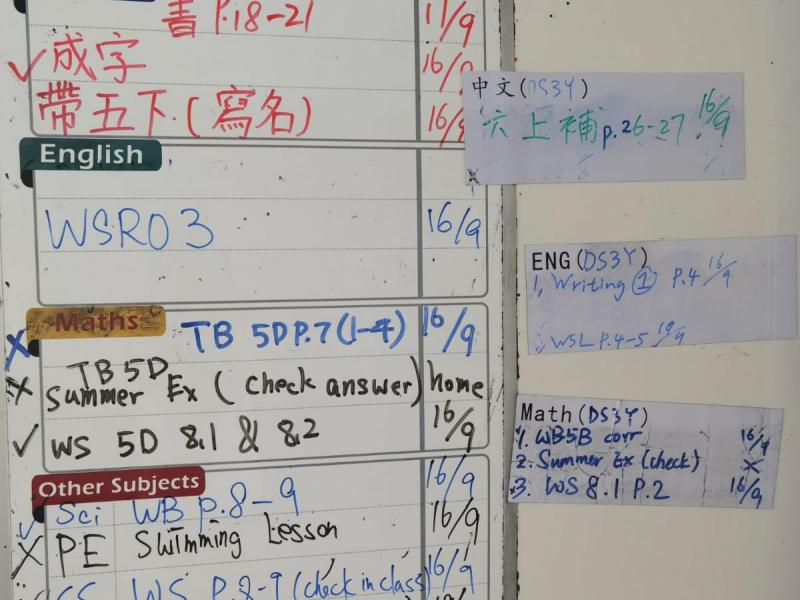 書 P.18-21 17/9
成字 16/9
帶五下.(寫名) 16/9
English
WSR03 16/9
Maths
TB 5D P.7 (1-4) 16/9
TB 5D
Summer Ex (check answer) home
WS 5D 8.1 & 8.2 16/9
Other Subjects
Sci WB p.8-9 16/9
PE Swimming Lesson 16/9
WS P.8-9 (check in class) 16/9
中文(DS3Y)
六上補 p.26-27 16/9
ENG(DS3Y)
1, Writing ① P.4 16/9
WSL P.4-5 19/9
Math(DS3Y)
1. WB5B corr 16/9
2. Summer Ex (check) ×
3. WS 8.1 P.2 16/9